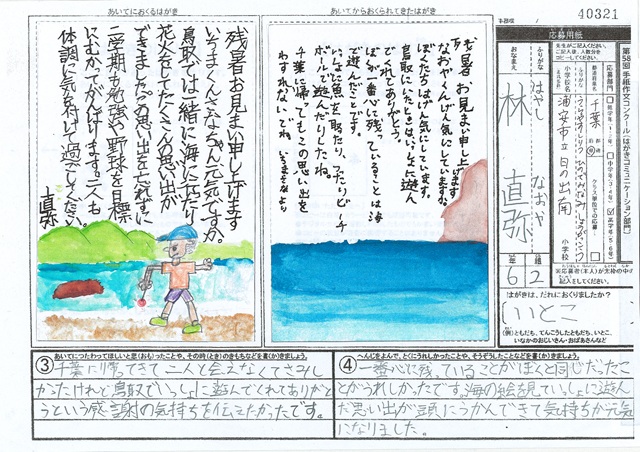 あいてにおくるはがき
残暑お見まい申し上げます
いちまくんさなちゃん元気ですか。
鳥取では一緒に海に行たり
花火をしてたくさんの思い出が
できました。この思い出を忘れずに
二学期も勉強や野球を目標
にむかてがんばります。二人も
体調に気を付けて過ごしてください。
直弥
あいてからおくられてきたはがき
残暑お見まい申し上げます。
なおやくんげん気にしていますか。
ぼくたちはげん気にしています。
鳥取にいたときはいっしょに遊ん
でくれてありがとう。
ぼくが一番心に残っていることは海
で遊んだことです。
いっしょに魚を取たり、
ボールで遊んだりしたね。
千葉に帰ってもこの思い出を
わすれないでね。
40321
応募用紙
第58回 手紙作文コンクール(はがきコミュニケーション部門)
応募部門
都道府県名
千葉
県
小学校名
浦安市立日の出南
小学校
ふりがな
はやし なおや
おなまえ
林 直弥
6年
2組
※応募者(本人)が太枠の中だけ
記入をしてください。
はがきは、だれにおくりましたか?
いとこ
(例)ともだち、てんこうしたともだち、いとこ、
いなかのおじいさん・おばあさんなど
③ あいてにつたわってほしいと思(おも)ったことや、その時(とき)のきもちなどを書(か)きましょう。
千葉に帰ってきて二人と会えなくてさみし
かったけれど鳥取でいっしょに遊んでくれてありがと
うという感謝の気持ちを伝えたかったです。
④ へんじをよんで、とくにうれしかったことや、そうぞうしたことなどを書(か)きましょう。
一番心に残っていることがぼくと同じだったこ
とがうれしかったです。海の絵を見ていっしょに遊ん
だ思い出が頭にうかんできて気持ちが元気
になりました。